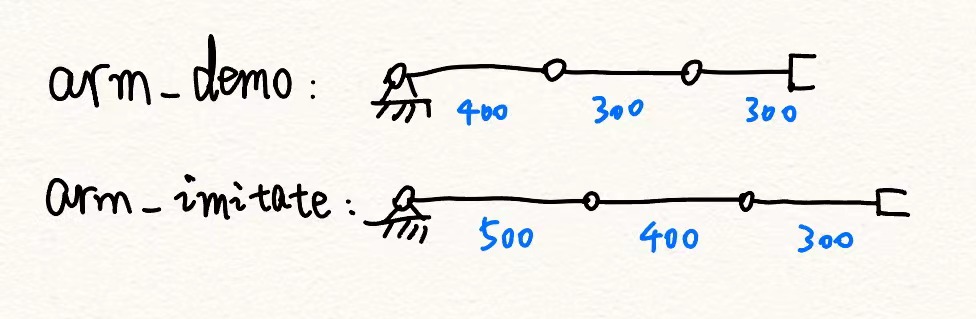 arm_demo:
400 300 300
arm_imitate:
500 400 300